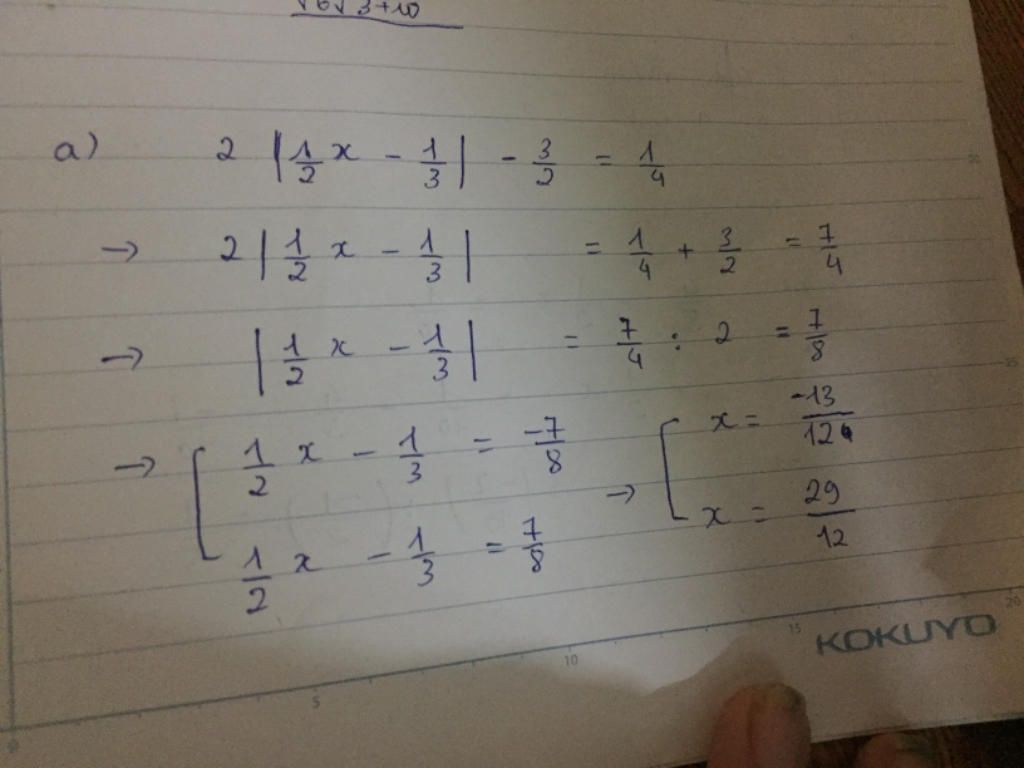 √6√3+10
a) 2 |1/2 x - 1/3| - 3/2 = 1/4
→ 2 |1/2 x - 1/3| = 1/4 + 3/2 = 7/4
→ |1/2 x - 1/3| = 7/4 : 2 = 7/8
→ [ 1/2 x - 1/3 = -7/8 → [ x = -13/12
1/2 x - 1/3 = 7/8 x = 29/12
0 5 10 15 20
KOKUYO